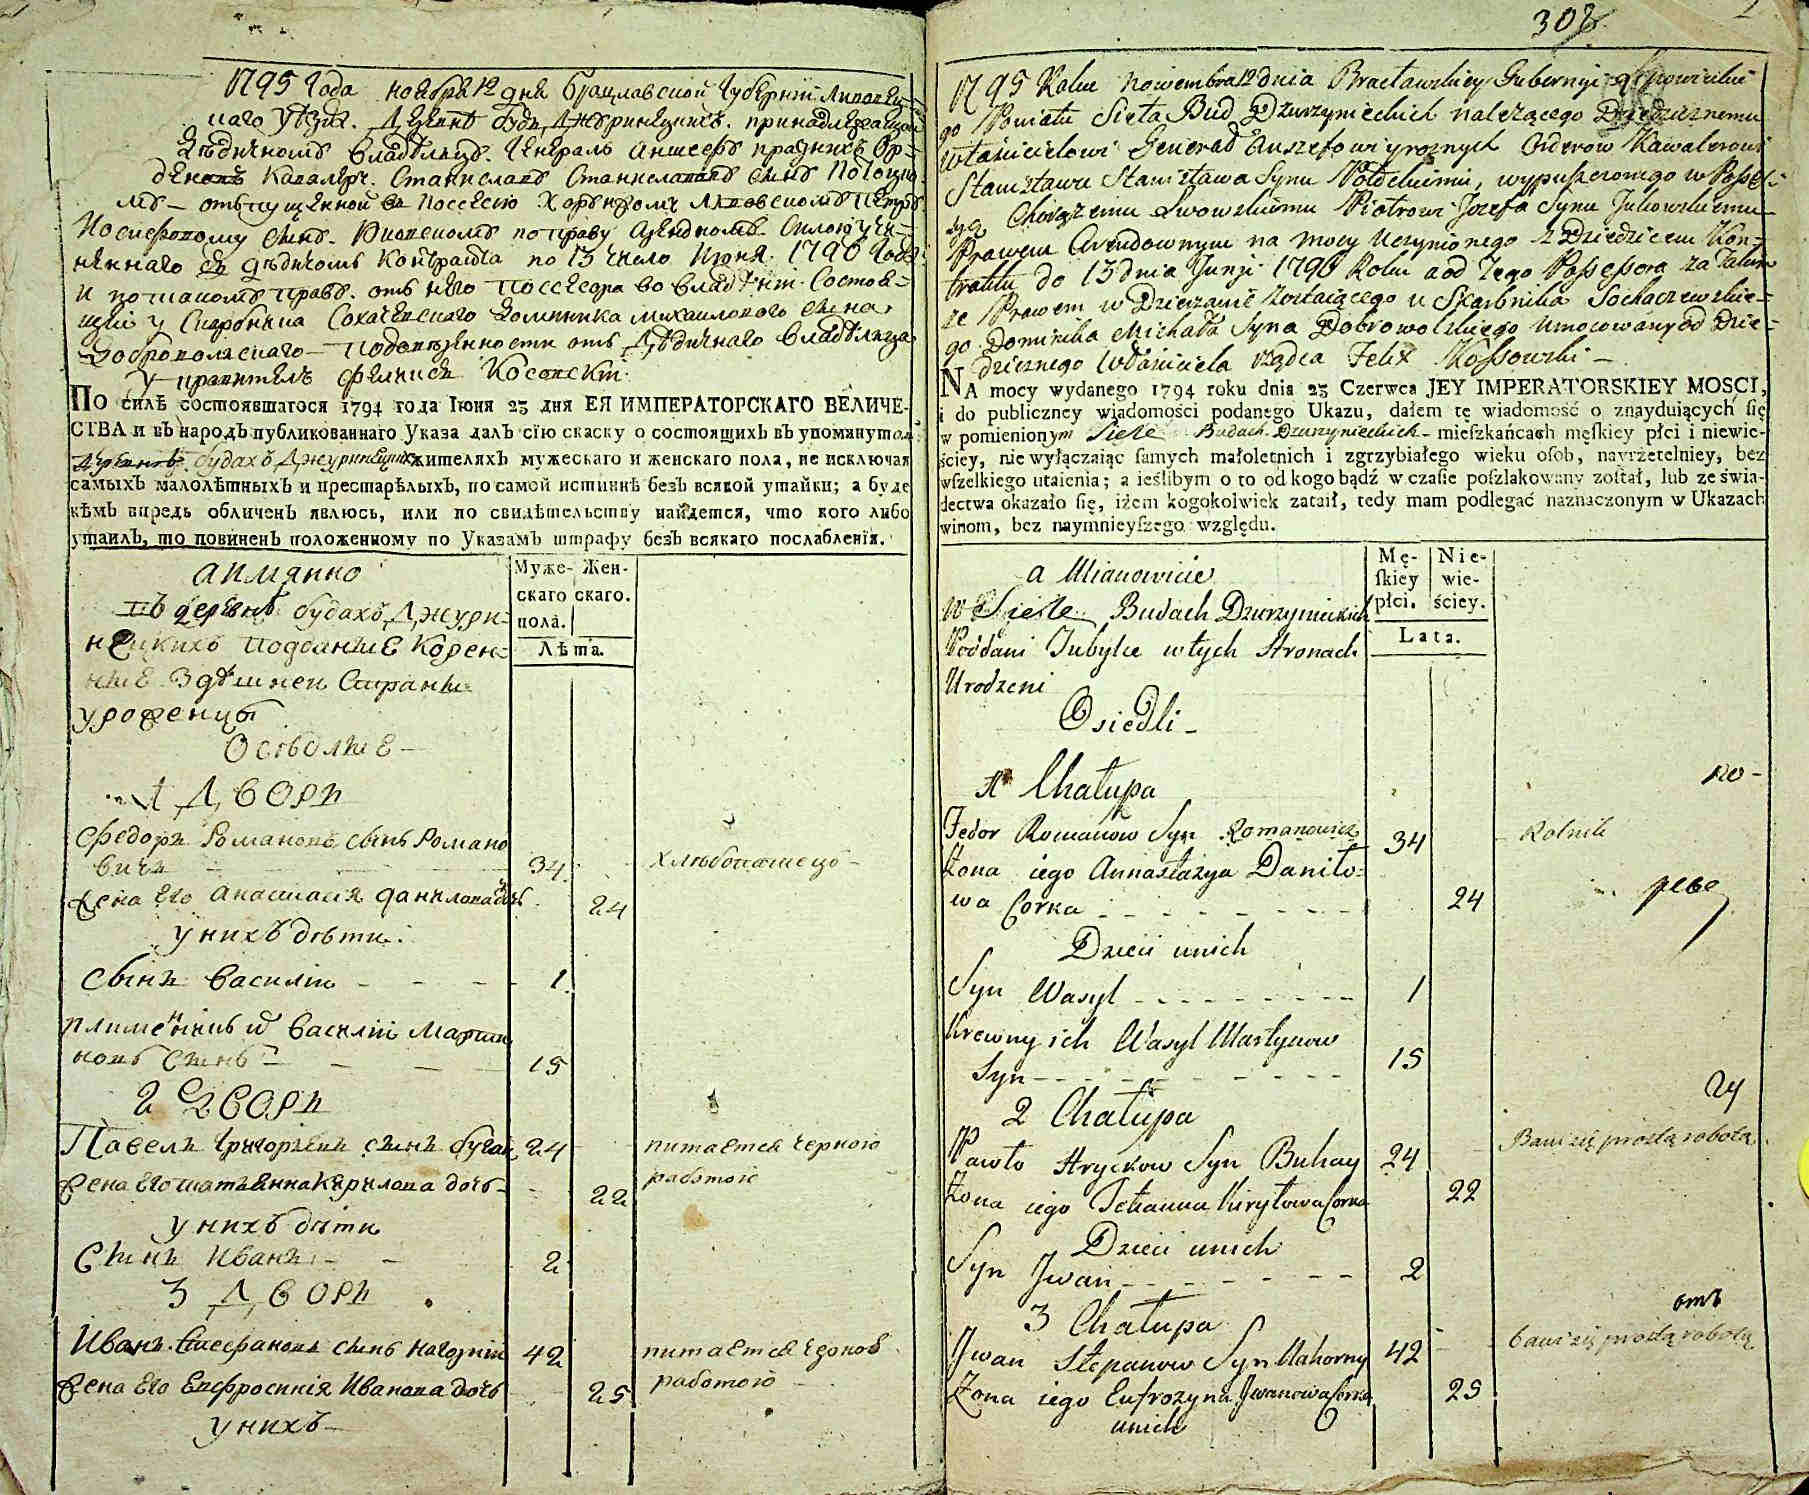 1795 Года ноября 12 дня Брацлавской Губернии Липовец-
каго уезда. Деревне Буди Джуринецкихъ. принадлежащой
Дѣдичномъ владѣльцъ. Генералъ Аншефъ празныхъ Ор-
деновъ Кавалеръ. Станиславъ Станиславовъ сынъ Потоцко
мъ – отъпущенной въ поссесию Хоронжомъ Львовскомъ Петръ
Иосифовому сынъ. по праву Арендномъ. силою учи-
неннаго съ дѣдичомъ контракта по 13 число Июня 1796 года
и по такомъ правъ. отъ него поссесора во владѣніи состоя-
щей у Скарбника Сохачевского Доминика Михайлового сына
Добровольскаго – отъ Дѣдичнаго владѣльца
у правитель Феликсъ Косовски.
ПО силѣ состоявшагося 1794 года Іюня 23 дня ЕЯ ИМПЕРАТОРСКАГО ВЕЛИЧЕ-
СТВА и въ народъ публикованнаго Указа далъ сію скаску о состоящихъ въ упомянутой
деревнѣ Будахъ Джуринецкихъ жителяхъ мужескаго и женскаго пола, не исключая
самыхъ малолѣтныхъ и престарѣлыхъ, по самой истиннѣ безъ всякой утайки; а буде
кѣмъ впредь обличенъ явлюсь, или по свидѣтельству найдется, что кого либо
утаилъ, то повиненъ положенному по Указамъ штрафу безъ всякаго послабленія.
Муже-
скаго
пола.
Жен-
скаго.
Лѣта.
а имянно
въ деревнѣ Будахъ Джури-
нецкихъ подданные корен-
ные здѣшнеи стараны
уроженцы
Осѣдлые –
1 Дворъ
Федоръ Романовъ сынъ Романо
вичъ 34 хлѣбопашецъ –
жена его Анастасия Данилова дочь 24
у нихъ дѣти.
Сынъ Василии – – – 1
племенникъ их Василии Марти
новъ сынъ – – – 15
2 Дворъ
Павелъ Григориевъ сынъ Бугай 24 питается черною
работою
жена его Татьянна Кирилова дочь – 22
у нихъ дѣти
Сынъ Иванъ – – 2
3 Дворъ
Иванъ Стефановъ сынъ Нагорнии 42 питается черною
работою
жена его Евфросиния Иванова дочь 25
у нихъ –
308
1795 Roku Nowembra 12 dnia Bracławskiey Gubernyi Lipowieckie
go Powiatu Sieła Bud Dzurzynieckich należącego Dziedzicznemu
właścicielowi Generał Anszefowi y roznych Orderow Kawalerowi
Stanisławu Stanisława Synu Potockiemu, wypuszczonego w Posses-
syą Chorążemu Lwowskiemu Piotrowi Jozefa Synu Jukowskiemu
Prawem Arendownym na mocy uczynionego z Dziedzicem Kon-
traktu do 13 dnia Junji 1796 Roku a od tego Possessora za takim
że Prawem w Dzierżawie zostającego u Skarbnika Sochaczewskie-
go Dominika Michała Syna Dobrowolskiego umocowany od Dzie-
dzicznego Właściciela rządca Felix Kossowski –
NA mocy wydanego 1794 roku dnia 23 Czerwca JEY IMPERATORSKIEY MOSCI,
i do publiczney wiadomości podanego Ukazu, dałem tę wiadomość o znayduiących się
w pomienionym Siele Budach Dzurzynieckich – mieszkańcach męskiey płci i niewie-
ściey, nie wyłączaiąc samych małoletnich i zgrzybiałego wieku osob, nayrzetelniey, bez
wszelkiego utaienia; a ieślibym o to od kogo bądź w czasie poszlakowany został, lub ze świa-
dectwa okazało się, iżem kogokolwiek zataił, tedy mam podlegać naznaczonym w Ukazach
winom, bez naymnieyszego względu.
Mę-
skiey
płci.
Nie-
wie-
ściey.
Lata.
a Mianowicie
w Siele Budach Dzurzynieckich
Poddani Tubylce w tych Stronach
Urodzeni
Osiedli –
1 Chałupa
Fedor Romanow Syn Romanowicz 34 Rolnik
Żona iego Annastazya Daniło-
wa Corka – – – 24
Dzieci unich
Syn Wasyl – – – 1
Krewny ich Wasyl Martynow
Syn – – – 15
2 Chałupa
Pawło Hryckow Syn Buhay 24 Bawi się prostą robotą
Żona iego Tetianna Kiryłowa Corka 22
Dzieci unich
Syn Jwan – – – 2
3 Chałupa
Jwan Stepanow Syn Nahorny 42 bawi się prostą robotą
Żona iego Eufrozyna Jwanowa Corka 25
unich
по –
24
отъ